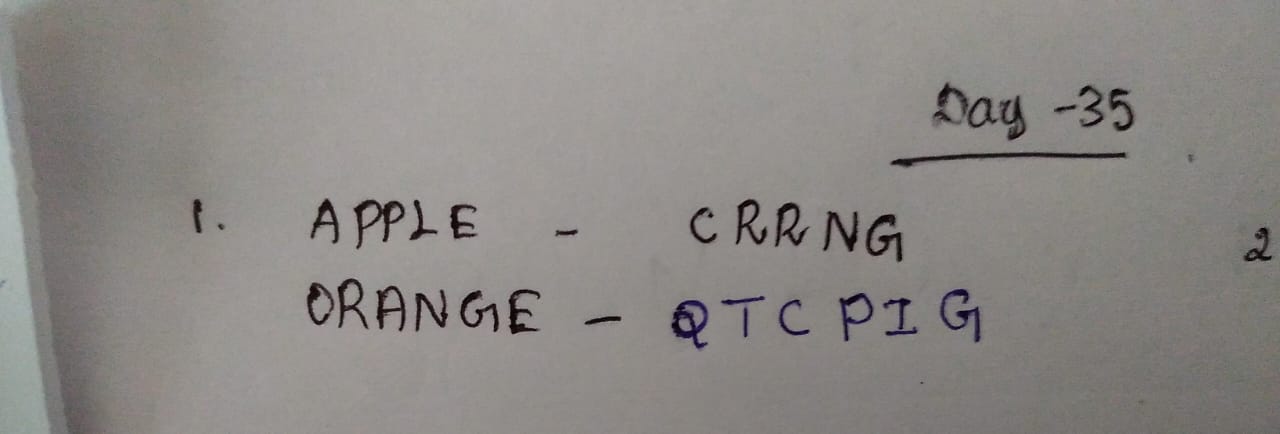 Day -35
1. APPLE - CRRNG 2
ORANGE - QTCPIG